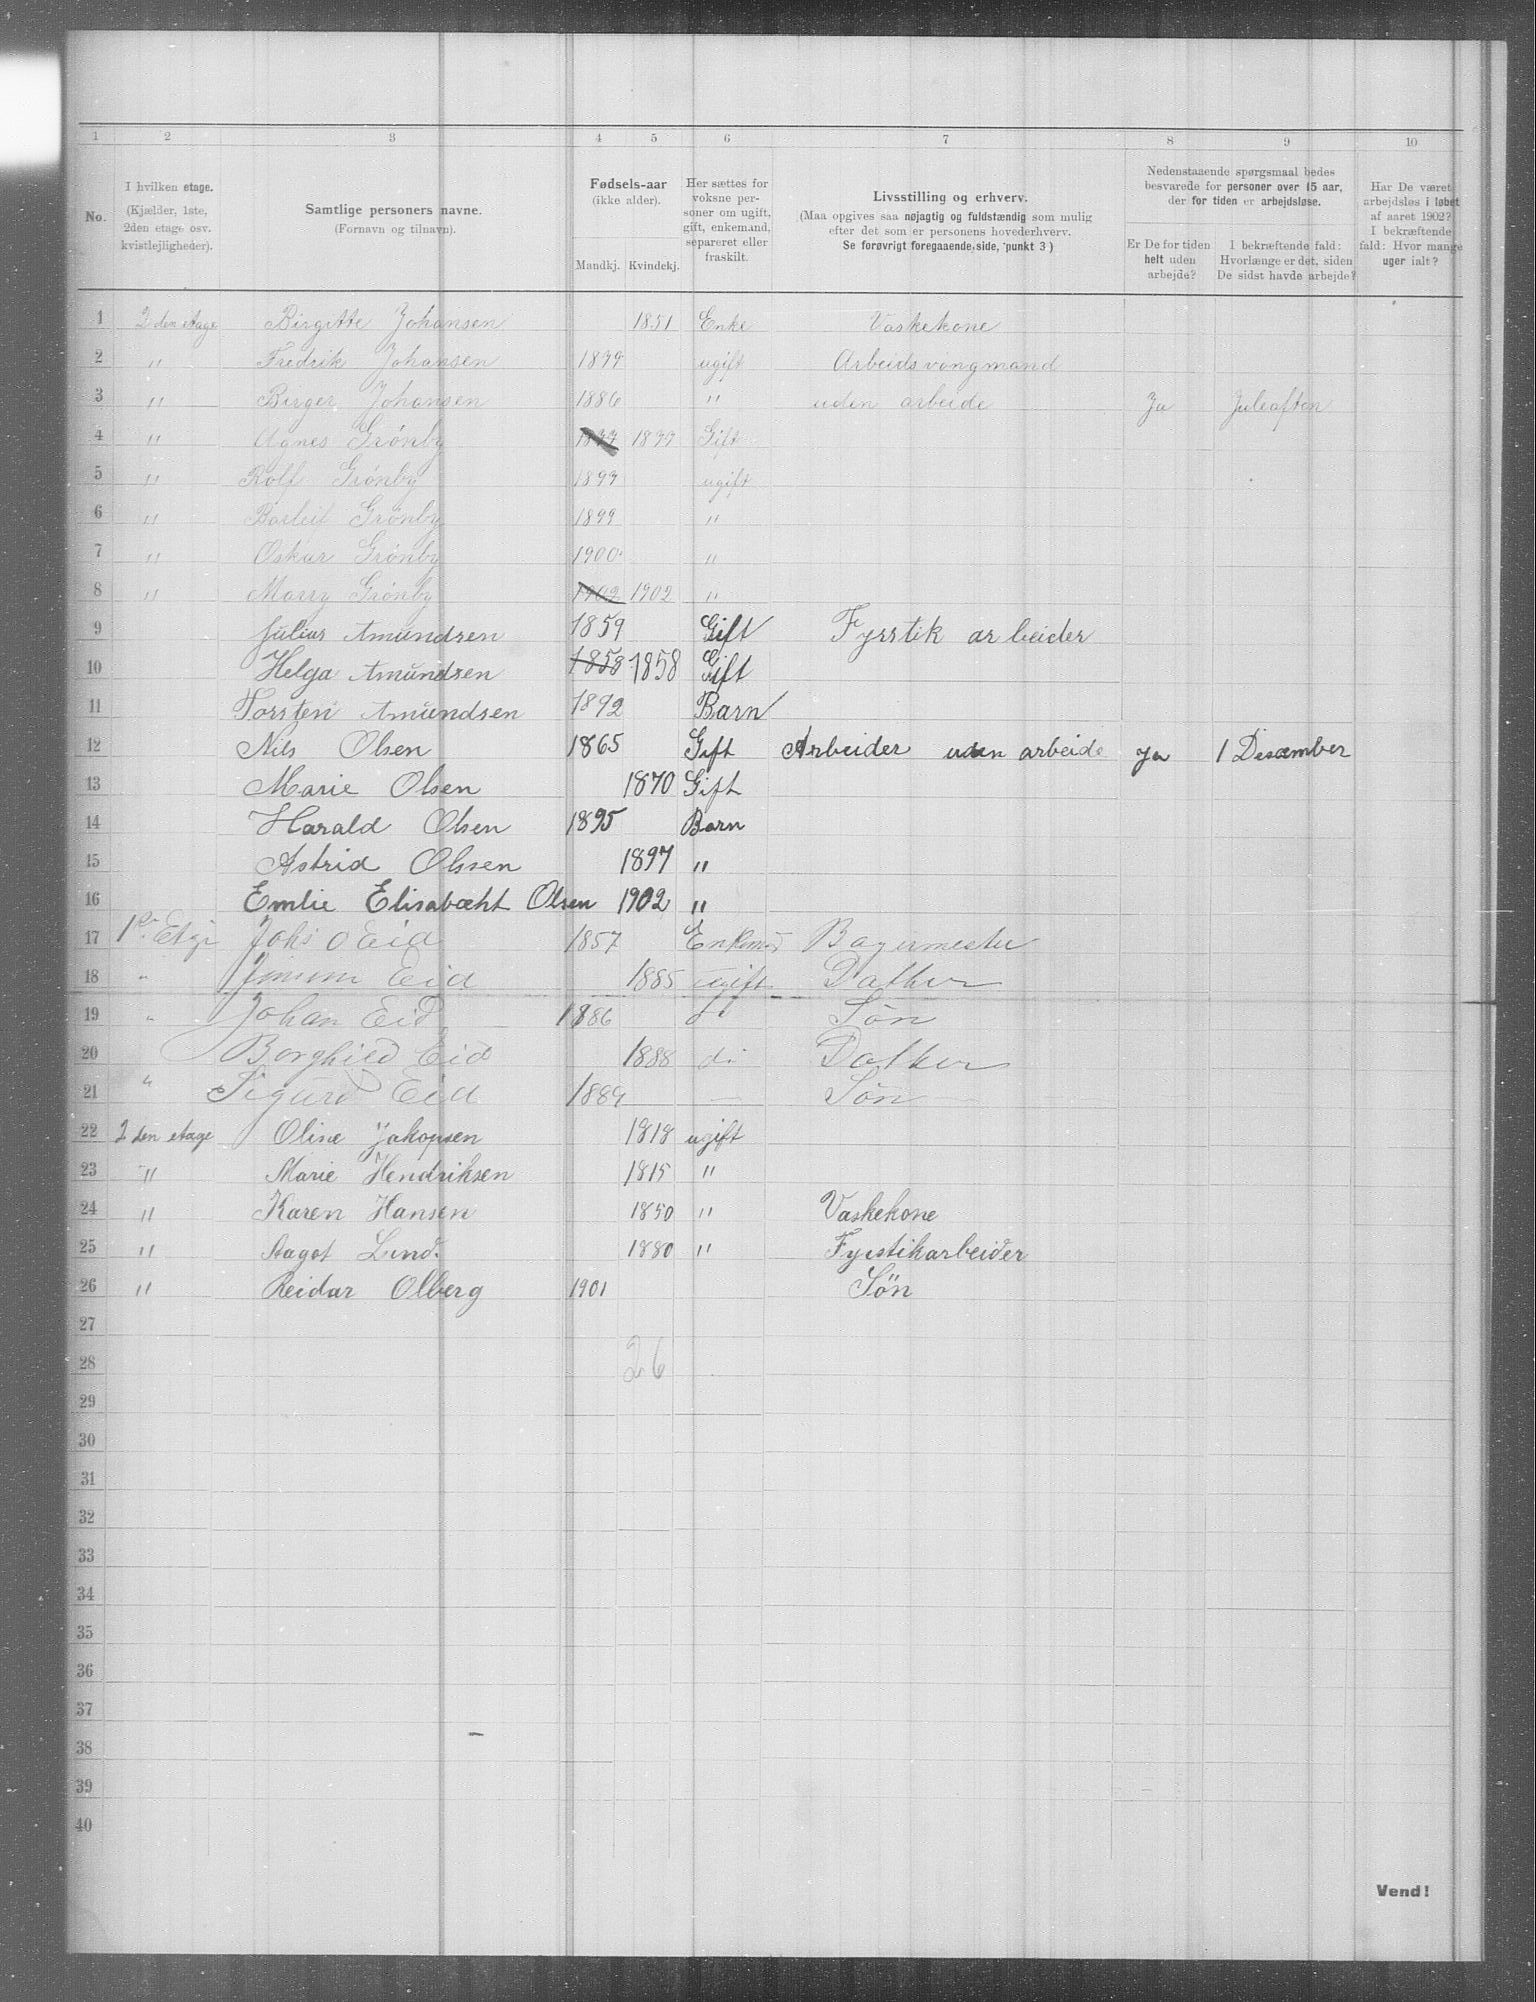 1 2 3 4 5 6 7 8 9 10
No.
I hvilken etage.
(Kjælder, 1ste,
2den etage osv.
kvistlejligheder).
Samtlige personers navne.
(Fornavn og tilnavn).
Fødsels-aar
(ikke alder).
Mandkj. Kvindekj.
Her sættes for
voksne per-
soner om ugift,
gift, enkemand,
separeret eller
fraskilt.
Livsstilling og erhverv.
(Maa opgives saa nøjagtig og fuldstændig som mulig
efter det som er personens hovederhverv.
Se forøvrigt foregaaende side, punkt 3)
Nedenstaaende spørgsmaal bedes
besvarede for personer over 15 aar,
der for tiden er arbejdsløse.
Er De for tiden
helt uden
arbejde?
I bekræftende fald:
Hvorlænge er det, siden
De sidst havde arbejde?
Har De været
arbejdsløs i løbet
af aaret 1902?
I bekræftende
fald: Hvor mange
uger ialt?
1 2 den etage Birgitte Johansen 1851 Enke Vaskekone
2 " Fredrik Johansen 1879 ugift Arbeidsvongmand
3 " Birger Johansen 1886 " uden arbeide Ja Juleaften
4 " Agnes Grønby 1877 1877 Gift
5 " Rolf Grønby 1897 ugift
6 " Grønby 1899 "
7 " Oskar Grønby 1900 "
8 " Marry Grønby 1902 1902 "
9 Julius Amundsen 1859 Gift Fyrstik arbeider
10 Helga Amundsen 1858 1858 Gift
11 Torsten Amundsen 1892 Barn
12 Nils Olsen 1865 Gift Arbeider uden arbeide Ja 1 Desember
13 Marie Olsen 1870 Gift
14 Harald Olsen 1895 Barn
15 Astrid Olssen 1897 "
16 Emlie Elisabæht Olsen 1902 "
17 1ste Etge Johs O Eid 1857 Enkemd Bagermester
18 " Eid 1885 ugift Datter
19 " Johan Eid 1886 d: Søn
20 Borghild Eid 1888 d: Datter
21 " Sigurd Eid 1889 — Søn
22 2 den etage Oline Jakopsen 1818 ugift
23 " Marie Hendriksen 1815 "
24 " Karen Hansen 1850 " Vaskekone
25 " Aagot Lund. 1880 " Fyrstikarbeider
26 " Reidar Olberg 1901 Søn
27
28 26
29
30
31
32
33
34
35
36
37
38
39
40
Vend!